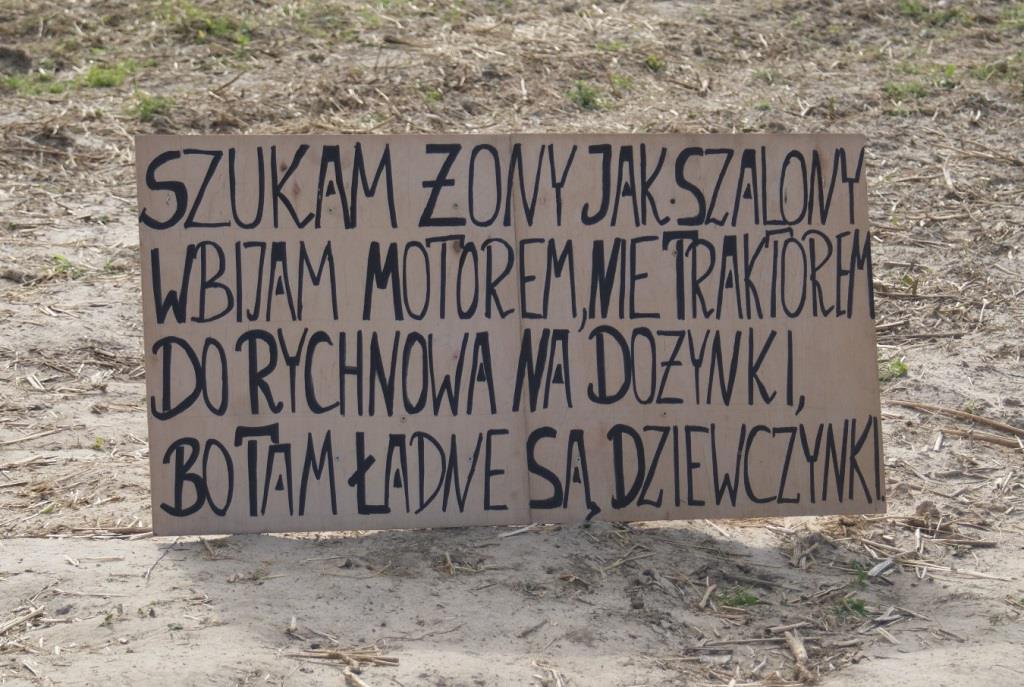 SZUKAM ŻONY JAK SZALONY
WBIJAM MOTOREM, NIE TRAKTOREM
DO RYCHNOWA NA DOŻYNKI,
BO TAM ŁADNE SĄ DZIEWCZYNKI.